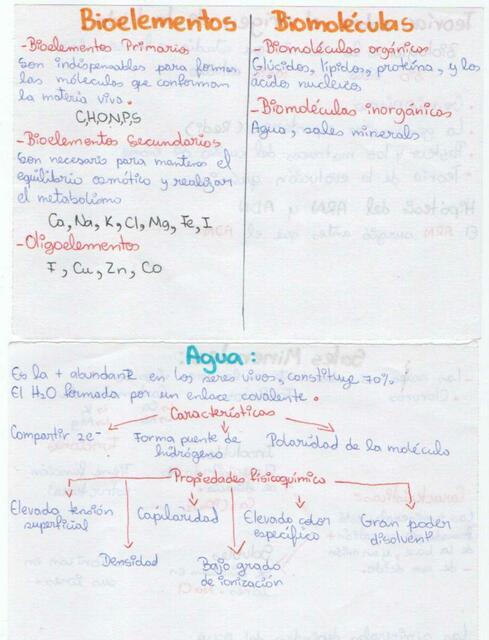 Bioelementos
-Bioelementos Primario
Son indispensables para formar
las móleculas que conforman
la materia viva.
C,H,O,N,P,S
-Bioelementos Secundarios
Son necesario para mantener el
equilibrio osmótico y realizar
el metabolismo
Ca, Na, K, Cl, Mg, Fe, I
-Oligoelementos
F, Cu, Zn, Co
Biomoléculas
-Biomoléculas orgánicas
Glúcidos, lípidos, proteína, y los
ácidos nucleicos
-Biomoléculas inorgánicas
Agua, sales minerals
Agua:
Es la + abundante en los seres vivos, constituye 70%
El H2O formada por un enlace covalente.
Características
Compartir 2e-
Forma puente de
hidrógeno
Polaridad de la molécula
Propiedades físicoquímico
Elevada tensión
superficial
Capilaridad
Elevado calor
específico
Gran poder
disolvente
Densidad
Bajo grado
de ionización